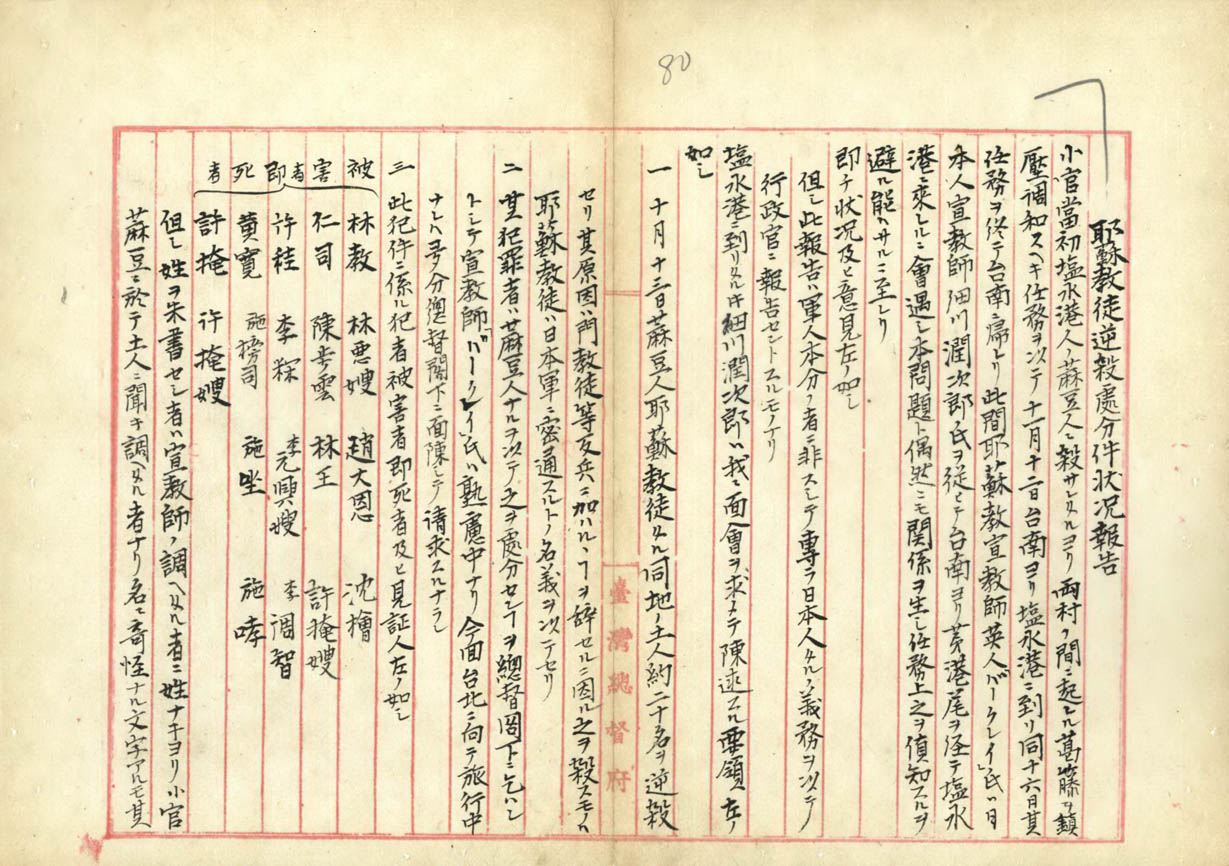 80
耶蘇教徒逆殺處分件状况報告
小官當初塩水港人ノ蔴豆人ニ殺サレタルヨリ両村ノ間ニ起レル葛藤ヲ鎮
壓調和スヘキ任務ヲ以テ十一月十二日台南ヨリ塩水港ニ到リ同十六日其
任務ヲ終テ台南ニ帰レリ此間耶蘇教宣教師英人バークレイ氏ハ日
本人宣教師細川潤次郎氏ヲ従ヒテ台南ヨリ茅港尾ヲ経テ塩水
港ニ来レルニ會遇シ本問題ト偶然ニモ関係ヲ生シ任務上之ヲ偵知スルヲ
避ル能ハサルニ至レリ
即チ状况及ヒ意見左ノ如シ
但シ此報告ハ軍人本分ノ者ニ非スシテ専ラ日本人タルノ義務ヲ以テ
行政官ニ報告セントスルモノナリ
塩水港ニ到リタルトキ細川潤次郎ハ我ニ面會ヲ求メテ陳述スル要領左ノ
如シ
一 十月十三日蔴豆人耶蘇教徒タル同地ノ土人約二十名ヲ逆殺
セリ其原因ハ門教徒等反兵ニ加ハルヿヲ辞セルニ因ル之ヲ殺スモノハ
耶蘇教徒ハ日本軍ニ密通スルトノ名義ヲ以テセリ
二 其犯罪者ハ蔴豆人ナルヲ以テ之ヲ處分センヿヲ總督閣下ニ乞ハン
トシテ宣教師「バークレイ」氏ハ熟慮中ナリ今回台北ニ向テ旅行中
ナレハ多分總督閣下ニ面陳シテ請求スルナラン
三 此犯件ニ係ル犯者被害者即死者及ヒ見証人左ノ如シ
被害者即死者
林教 林悪嫂 趙大恩 沈檜
仁司 陳安雲 林王 許掩嫂
許桂 李粿 李元興嫂 李調智
黄寛 施榜司 施坐 施哮
許掩 许掩嫂
但シ姓ヲ朱書セシ者ハ宣教師ノ調ヘタル者ニ姓ナキヨリ小官
蔴豆ニ於テ土人ニ聞キ調ヘタル者ナリ名ニ奇怪ナル文字アルモ其
臺灣總督府